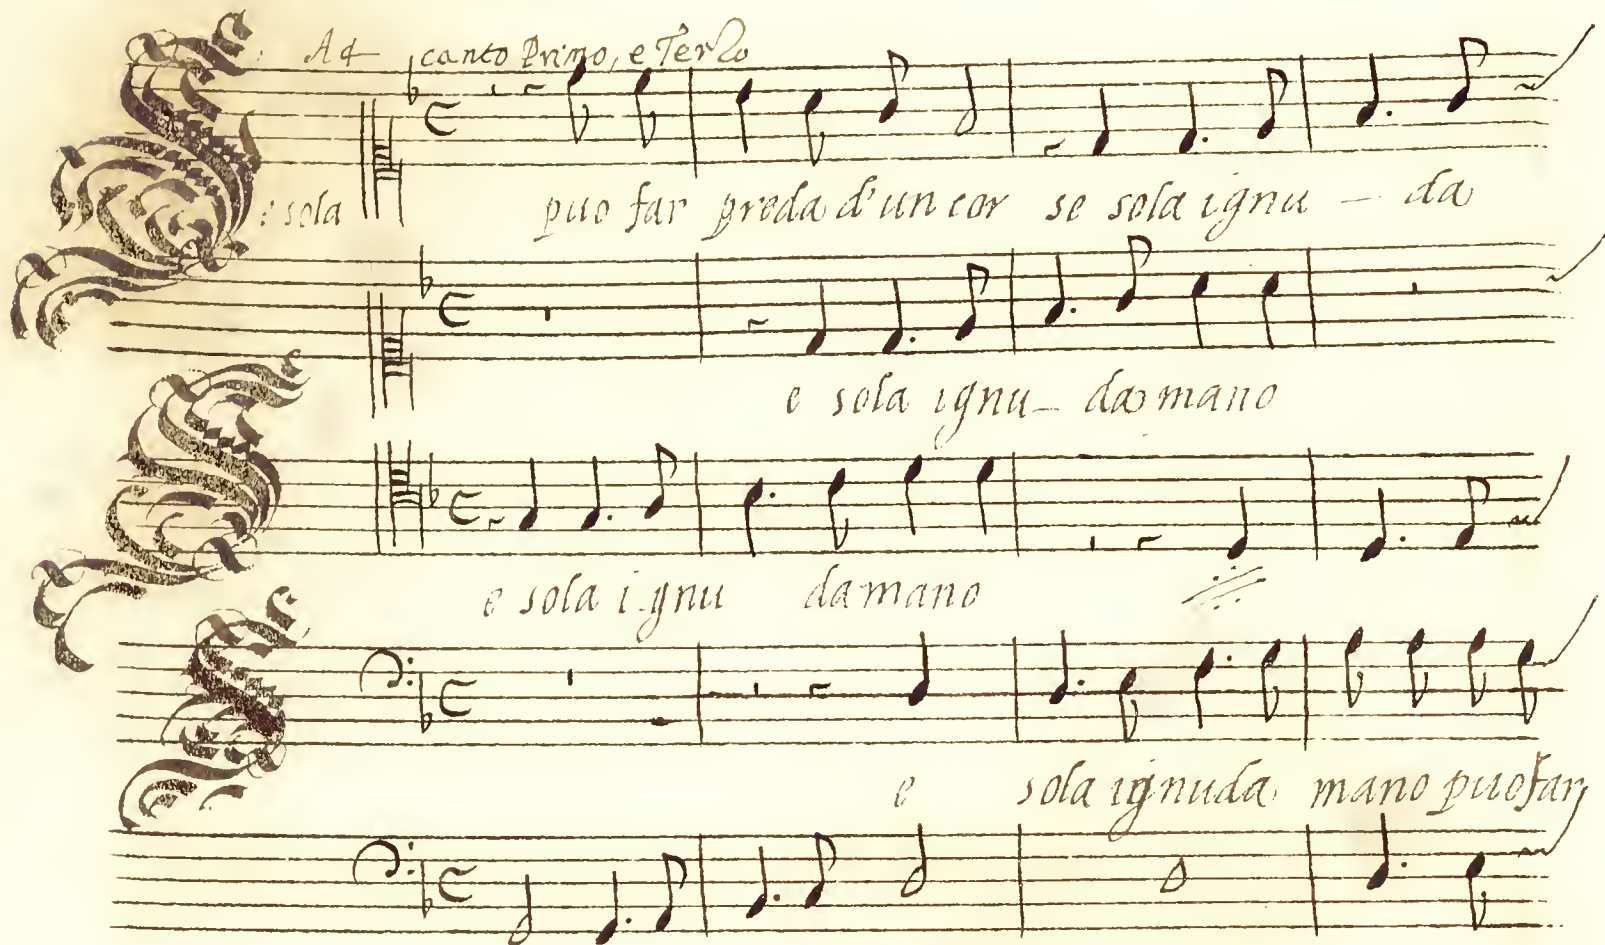 : A 4 canto Primo, e Terzo
: sola puo far preda d'un cor se sola ignu – da
e sola ignu – da mano
e sola i gnu da mano
e sola ignuda mano puo far